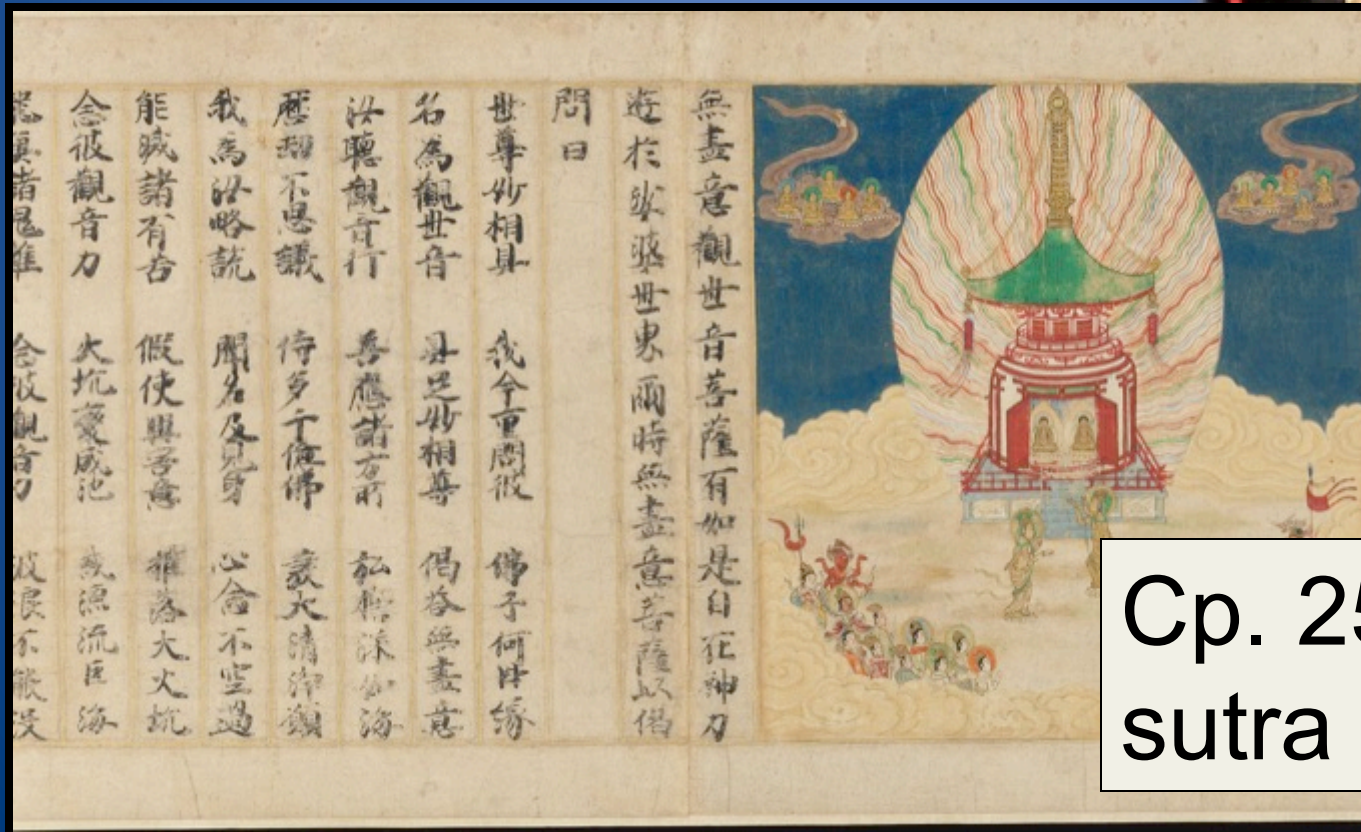 無盡意觀世音菩薩有如是自在神力
遊於娑婆世界爾時無盡意菩薩以偈
問曰
世尊妙相具 我今重問彼 佛子何因緣
名為觀世音 具足妙相尊 偈答無盡意
汝聽觀音行 善應諸方所 弘誓深如海
歷劫不思議 侍多千億佛 發大清淨願
我為汝略說 聞名及見身 心念不空過
能滅諸有苦 假使興害意 推落大火坑
念彼觀音力 火坑變成池 或漂流巨海
諸鬼難 念彼觀音力 波浪不能沒
Cp. 25
sutra